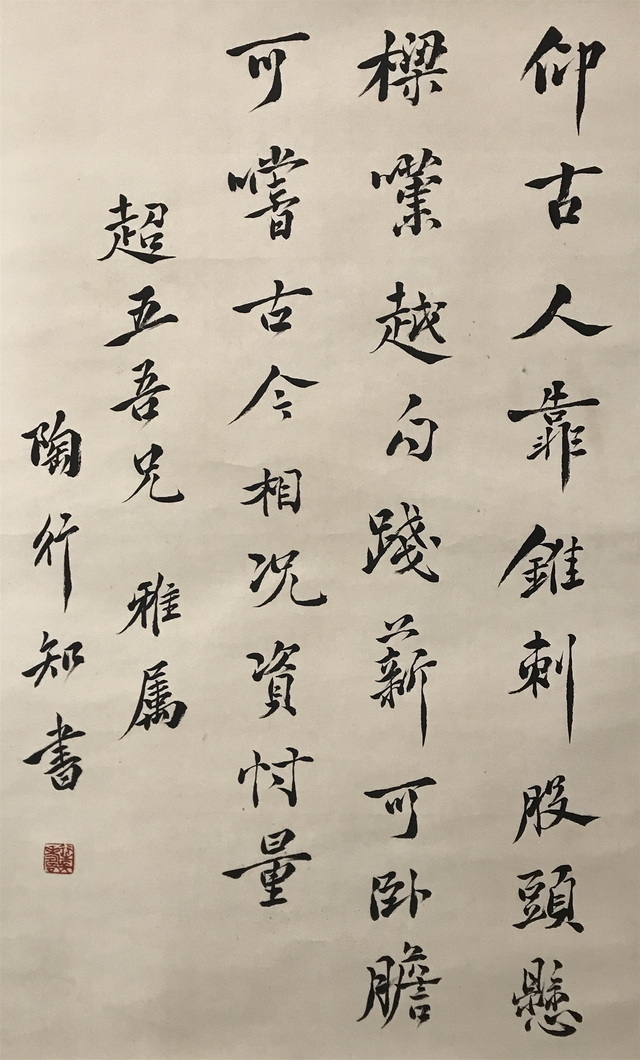 仰古人靠錐刺股頭懸
樑㗼越句踐薪可卧膽
可嚐古今相况資忖量
超五吾兄 雅属
陶行知書